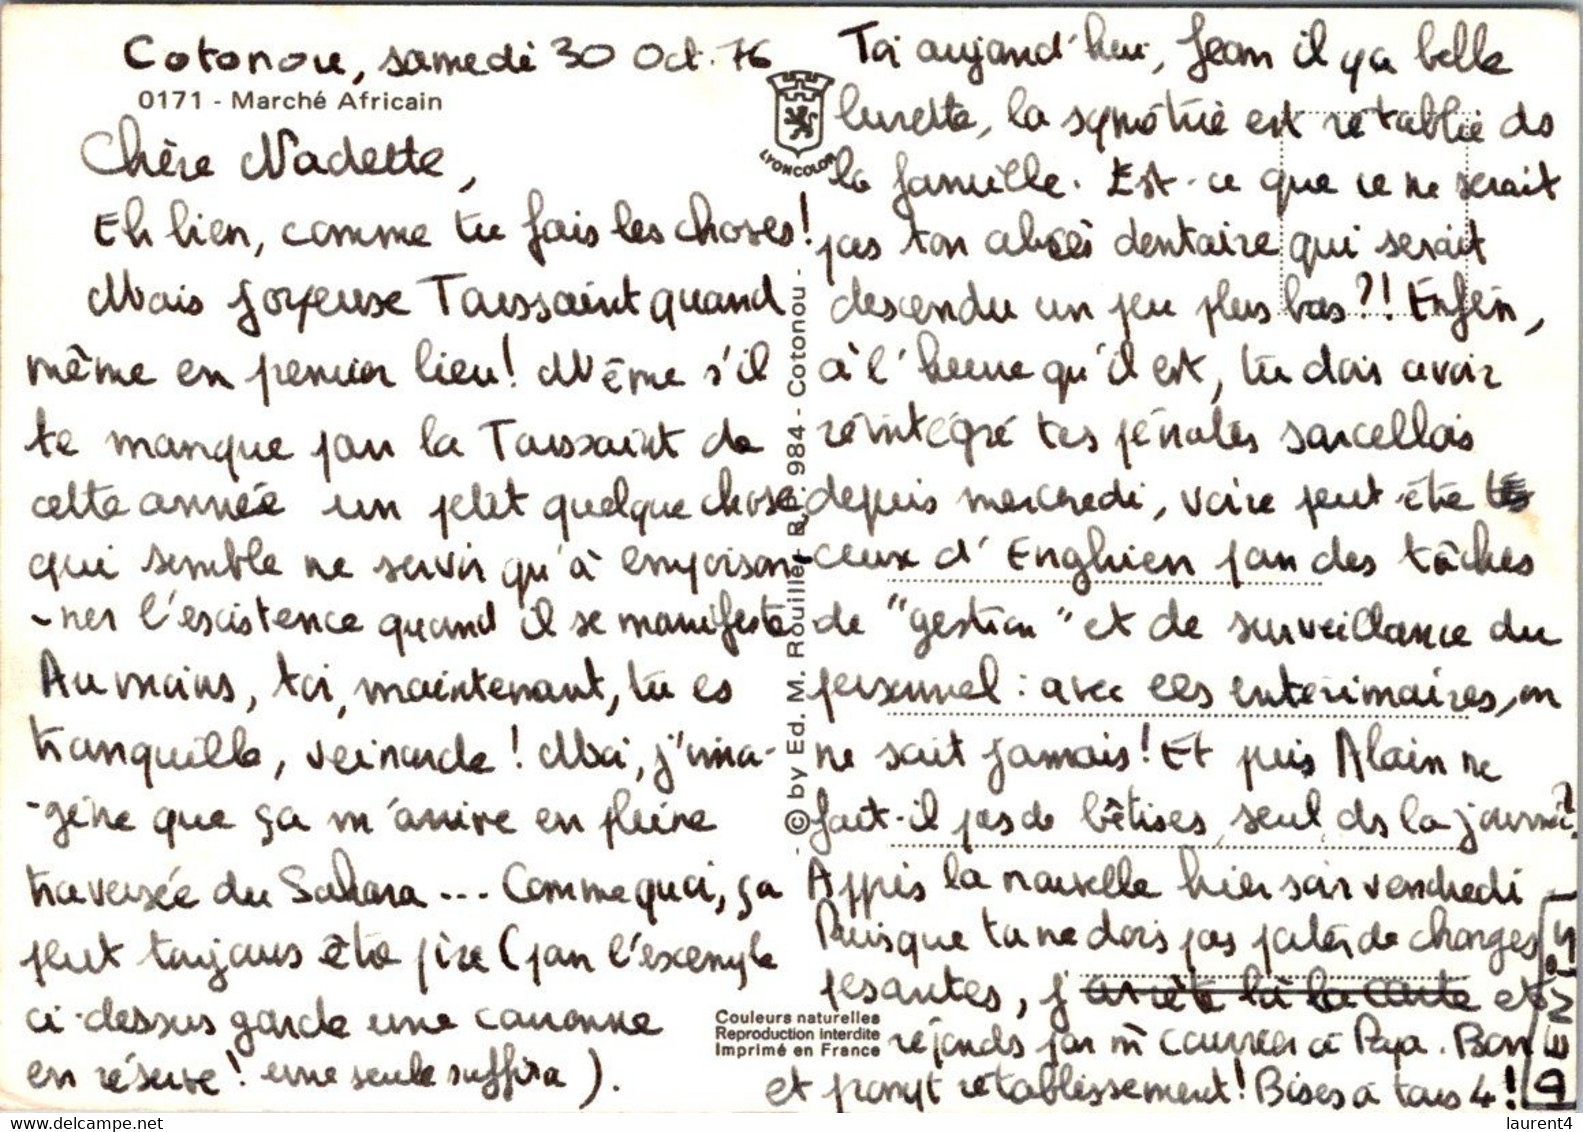 Cotonou, samedi 30 Oct. 76
0171 - Marché Africain
Chère Nadette,
Eh bien, comme tu fais les choses !
Mais joyeuse Toussaint quand
même en premier lieu ! Même s'il
te manque pour la Toussaint de
cette année un petit quelque chose,
qui semble ne servir qu'à empoison-
-ner l'existence quand il se manifeste
Au moins, toi, maintenant, tu es
tranquille, veinarde ! Moi, j'ima-
-gine que ça m'arrive en pleine
traversée du Sahara ... Comme quoi, ça
peut toujours être pire (par l'exemple
ci-dessus garde une couronne
en réserve ! une seule suffira ).
LYONCOLOR
- © by Ed. M. Rouillet B.P. 984 - Cotonou -
Couleurs naturelles
Reproduction interdite
Imprimé en France
Toi aujourd'hui, Jean il y a belle
lurette, la symétrie est rétablie ds
la famille. Est-ce que ce ne serait
pas ton abcès dentaire qui serait
descendu un peu plus bas ?! Enfin,
à l'heure qu'il est, tu dois avoir
réintégré tes pénates sarcellois
depuis mercredi, voire peut-être
ceux d'Enghien pour des tâches
de "gestion" et de surveillance du
personnel : avec ces intérimaires, on
ne sait jamais ! Et puis Alain ne
fait-il pas de bêtises, seul ds la journée ?
Appris la nouvelle hier soir vendredi
Puisque tu ne dois pas porter de charges
pesantes, j'arrête là la carte et
réponds par m̂ courrier à Papa. Bon
et prompt rétablissement ! Bises à tous 4 !
laurent4